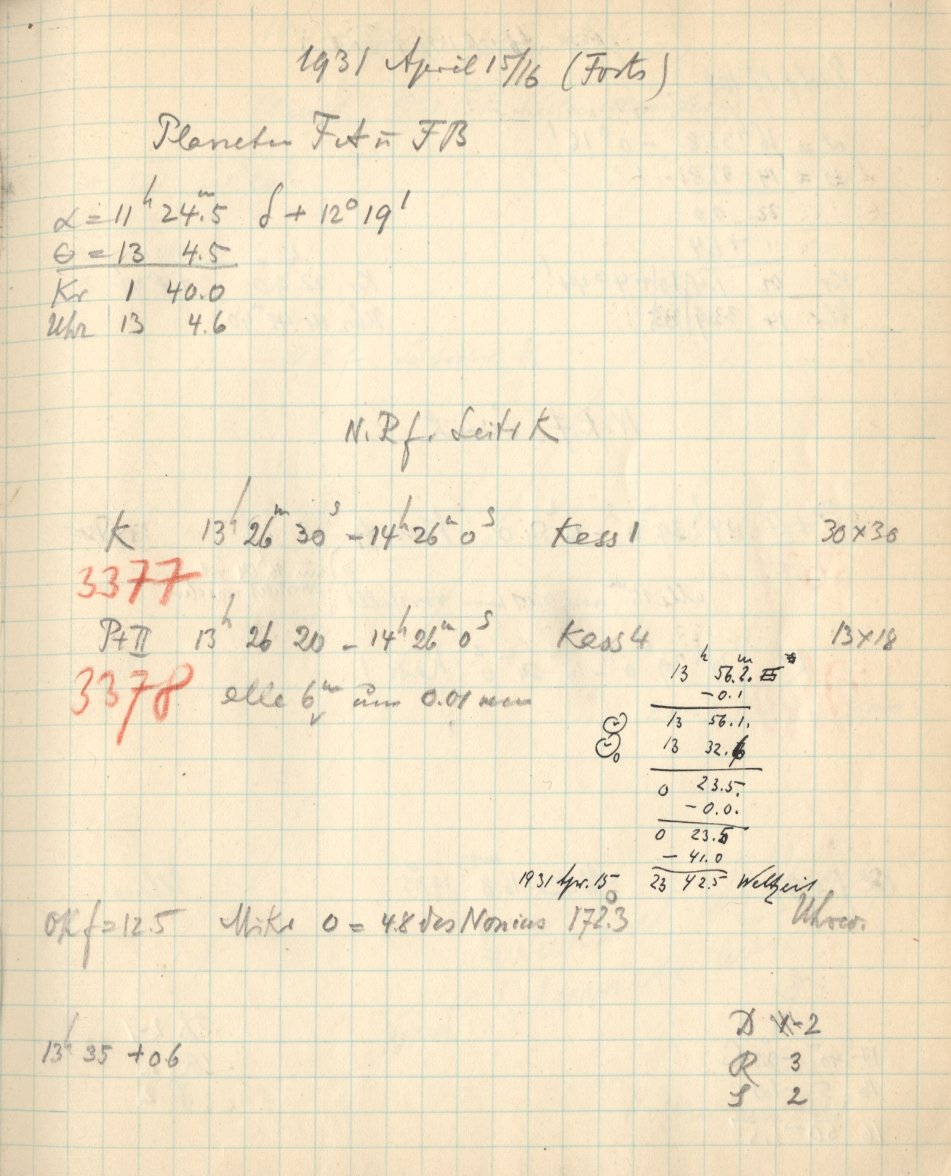 1931 April 15/16 (Forts)
Planeten FA u FB
α = 11ʰ 24.ᵐ5 δ + 12° 19'
Θ = 13 4.5
Kr 1 40.0
Uhr 13 4.6
N.R f. Seite K
K 13ʰ 26ᵐ 30ˢ - 14ʰ 26ᵐ 0ˢ Kass 1 30 × 30
3377
P+II 13ʰ 26 20 - 14ʰ 26ᵐ 0ˢ Kass 4 13 × 18
3378 alle 6ᵐ um 0.01 mm
13ʰ 56.ᵐ2
-0.1
13 56.1.
13 32.6
0 23.5.
-0.0.
0 23.5
- 41.0
1931 Apr. 15 23 42.5 Weltzeit
Okf = 12.5 Mikr 0 = 4.8 des Nonius 172.°3
13ʰ 35 + 0.6
D 2
R 3
S 2